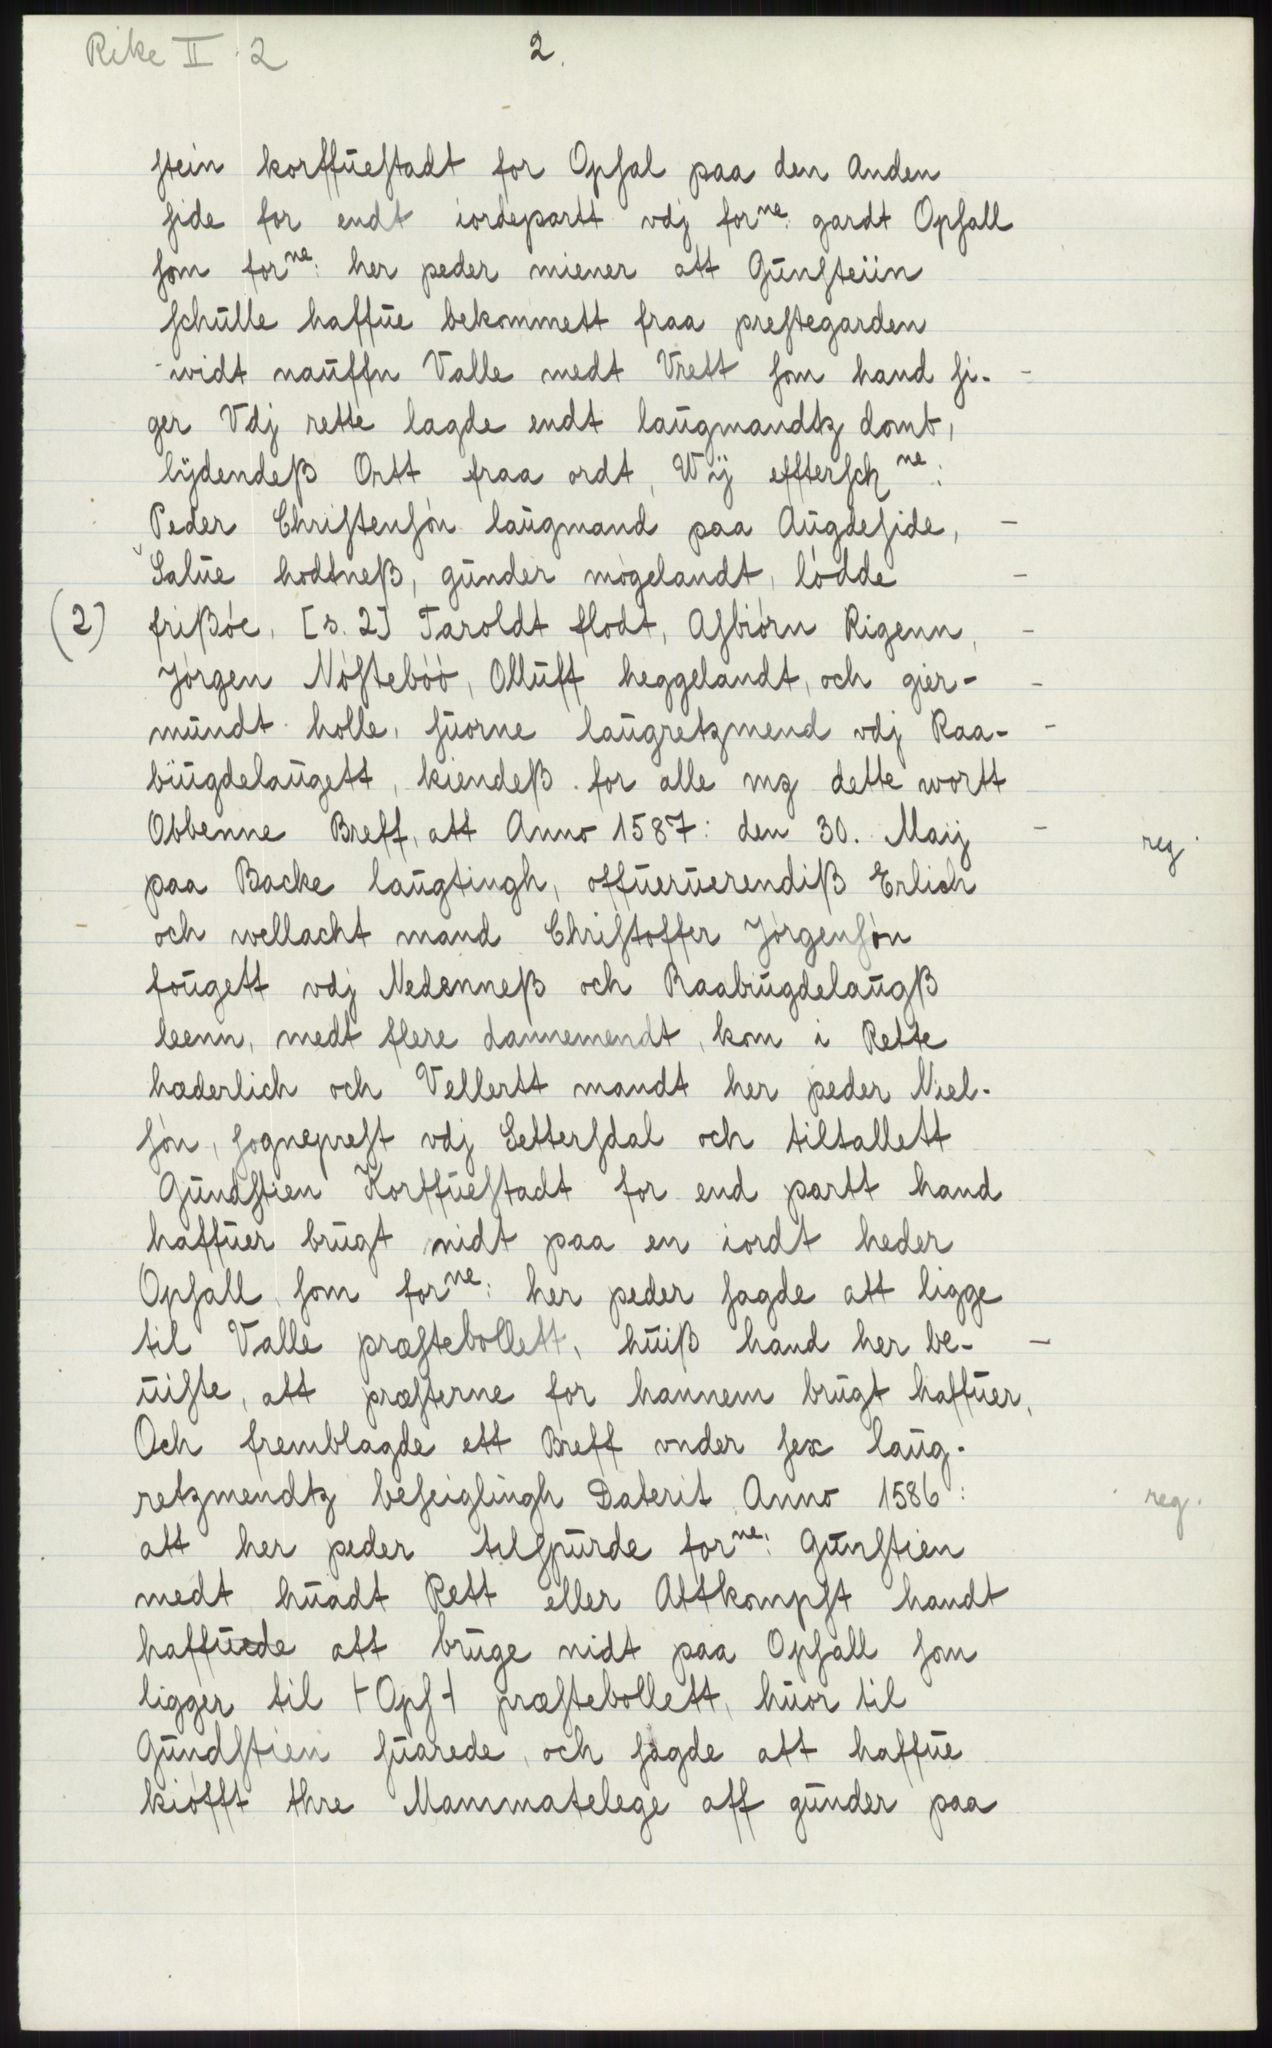 Rike II 2
2.
stein korffuestadt for Opsal paa den Anden
side for endt iordepartt vdj forne: gardt Opsall
som forne: her peder miener att Gunsteiin
schulle haffue bekommett fraa prestegarden
widt nauffn Valle medt Vrett som hand si-
ger Vdj rette lagde endt laugmandtz domb,
lÿdendeß Ortt fraa ordt, Wÿ efftersch ne:
Peder Christensón laugmand paa Augdeside,
Salue hodtneß, gunder mógelandt, lódde
(2) frißóe, [s. 2] Taroldt flodt, Asbiórn Rigenn,
Jórgen Nóstebóó, Olluff heggelandt, och gier-
mundt holle, suorne laugretzmend vdj Raa-
bÿugdelaugett, kiendeß for alle mz dette wortt
Obbenne Breff, att Anno 1587: den 30. Maij
reg.
paa Backe laugtingh, offueruerendiß Erlich
och wellacht mand Christoffer Jórgensón
fougett vdj Nedenneß och Raabiugdelaugß
leenn, medt flere dannemendt, kom i Rette
hæderlich och Vellertt mandt her peder Niel-
són, sogneprest vdj Settersdal och tiltallett
Gundstien Korffuestadt for end partt hand
haffuer brugt nidt paa en iordt heder
Opsall som forne: her peder sagde att ligge
til Valle præstebollett, huiß hand her be-
uiste, att præsterne for hannem brugt haffuer,
Och fremblagde ett Breff vnder sex laug-
retzmendtz beseiglingh Daterit Anno 1586:
reg.
att her peder tilspurde forne: Gunstien
medt huadt Rett eller Attkompst handt
haffuede att bruge nidt paa Opsall som
ligger til ⊢Ops⊣ præstebollett, huor til
Gundstien suarede, och sagde att haffue
kiófft thre Mammatelege aff gunder paa